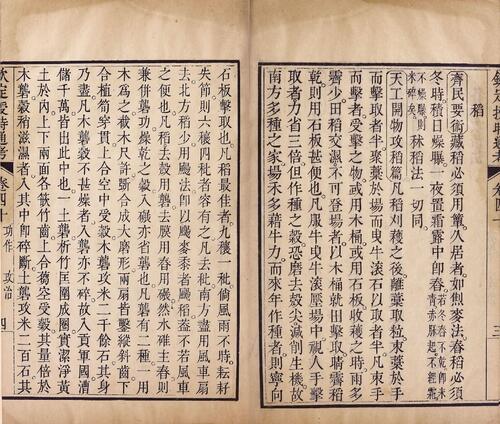 稻
齊民要術藏稻必須用簟久居者如劁麥法舂稻必須
冬時積日燥曝一夜置霜露中卽舂若冬舂不乾卽米青赤脈起不經霜
不燥曝則米碎矣秫稻法一切同
天工開物攻稻篇凡稻刈穫之後離藁取粒束藁於手
而擊取者半聚藁於場而曳牛滾石以取者半凡束手
而擊者受擊之物或用木桶或用石板收穫之時雨多
霽少田稻交濕不可登場者以木桶就田擊取晴霽稻
乾則用石板甚便也凡服牛曳牛滾壓場中視人手擊
取者力省三倍但作種之穀恐磨去殼尖減削生機故
南方多種之家場禾多藉牛力而來年作種者則寧向
石板擊取也凡稻最佳者九穰一秕倘風雨不時耘耔
失節則六穰四秕者容有之凡去秕南方盡用風車扇
去北方稻少用颺法卽以颺麥黍者颺稻蓋不若風車
之便也凡稻去殼用礱去膜用舂用碾然水碓主舂則
兼併礱功燥乾之穀入碾亦省礱也凡礱有二種一用
木爲之截木尺許斲合成大磨形兩扇皆鑿縱斜齒下
合植筍穿貫上合空中受穀木礱攻米二千餘石其身
乃盡凡木礱穀不甚燥者入礱亦不碎故入貢軍國漕
儲千萬皆出此中也一土礱析竹匡圍成圈實潔淨黃
土於內上下兩面各嵌竹齒上合篘空受穀其量倍於
木礱穀稍滋濕者入其中卽碎斷土礱攻米二百石其
欽定授時通考 卷四十 功作 攻治 四